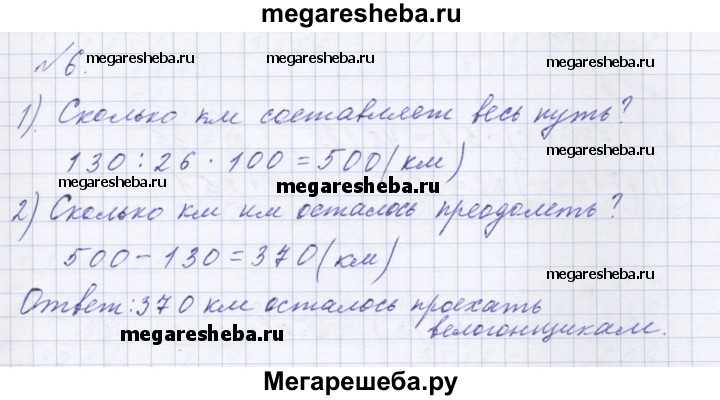 megaresheba.ru
№6. megaresheba.ru megaresheba.ru
1). Сколько км составляет весь путь?
130:26·100=500(км) megaresheba.ru
megaresheba.ru megaresheba.ru
2) Сколько км им осталось преодолеть?
500-130=370(км) megaresheba.ru
Ответ:370 км осталось проехать
megaresheba.ru велогонщикам.
megaresheba.ru
Мегарешеба.ру